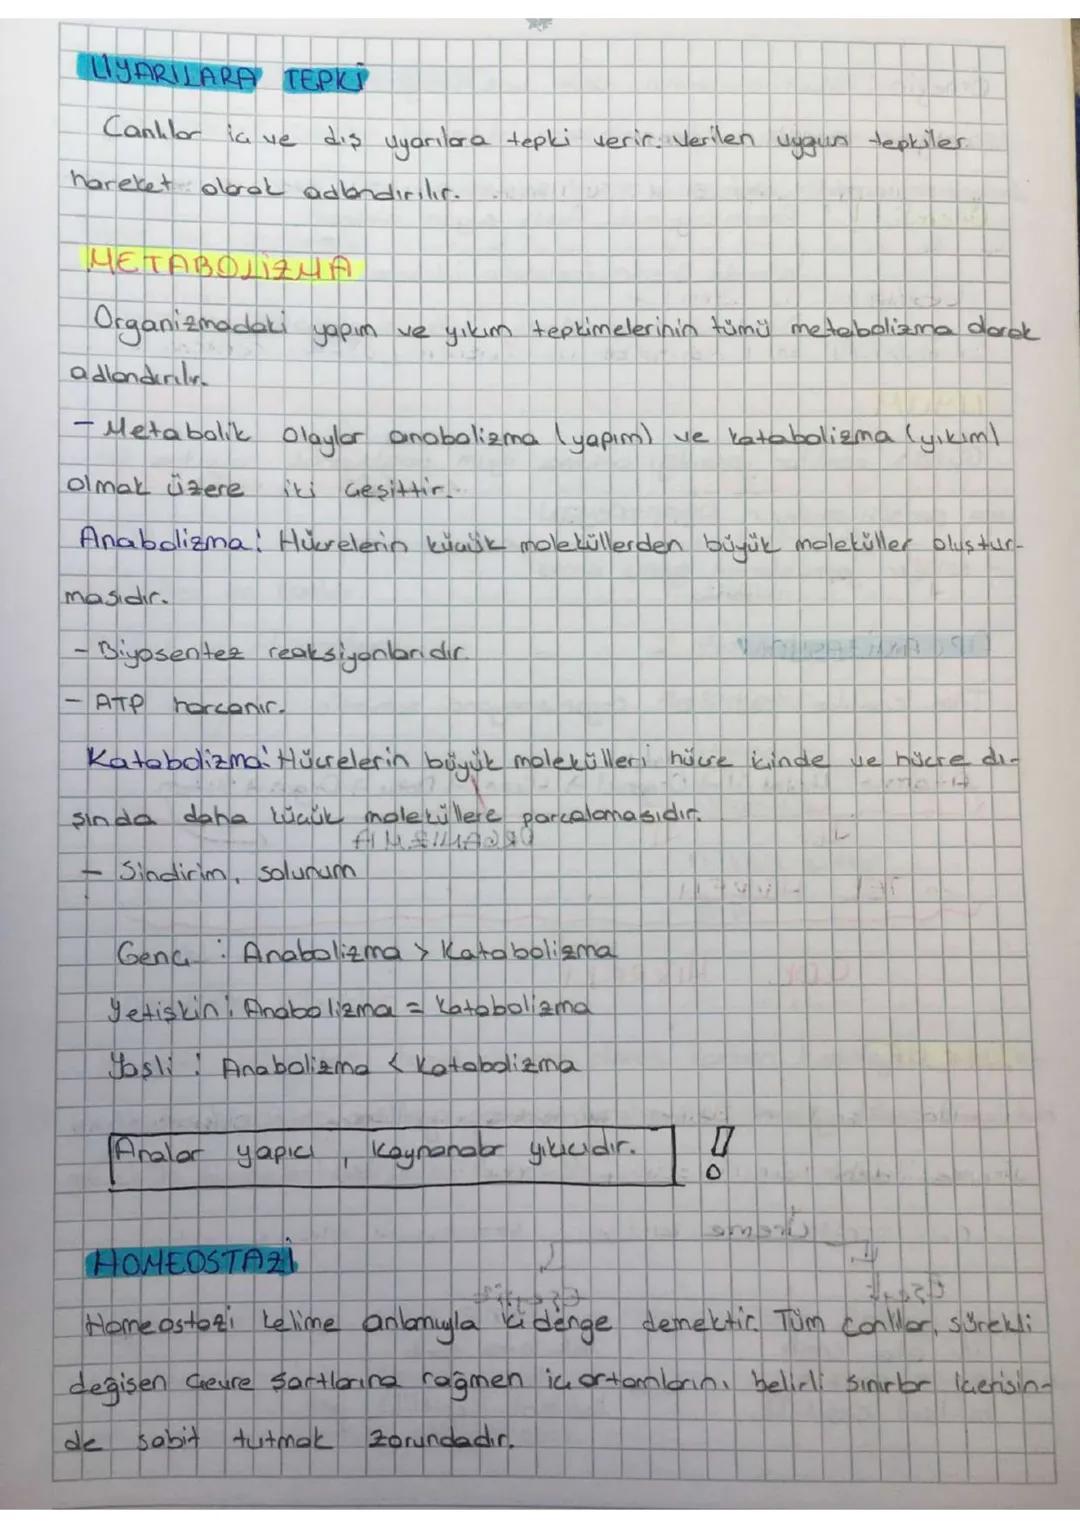 UYARILARA TEPKİ
Canlılar iç ve dış uyarılara tepki verir. Verilen uygun tepkiler
hareket olarak adlandırılır.
METABOLİZMA
Organizmadaki yapım ve yıkım tepkimelerinin tümü metabolizma olarak
adlandırılır.
- Metabolik olaylar anabolizma (yapım) ve katabolizma (yıkım)
olmak üzere iki çeşittir.
Anabolizma: Hücrelerin küçük moleküllerden büyük moleküller oluştur-
masıdır.
- Biyosentez reaksiyonlarıdır.
- ATP harcanır.
Katabolizma: Hücrelerin büyük molekülleri hücre içinde ve hücre dı-
şında daha küçük moleküllere parçalamasıdır.
- Sindirim, solunum
Genç : Anabolizma > Katabolizma
Yetişkin : Anabolizma = Katabolizma
Yaşlı : Anabolizma < Katabolizma
Analar yapıcı , Kaynanalar yıkıcıdır. !
HOMEOSTAZİ
Homeostazi kelime anlamıyla iç denge demektir. Tüm canlılar, sürekli
değişen çevre şartlarına rağmen iç ortamlarını belirli sınırlar içerisin-
de sabit tutmak zorundadır.